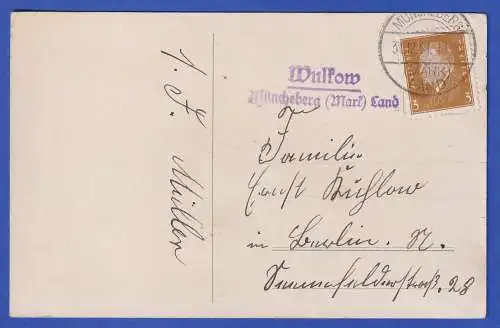 1. F. Müller
Wulkow
Müncheberg (Mark) Land
MÜNCHEBERG
5 5
An
Familie
Ernst Kuhlow
in Berlin. N.
Sonnefelderstraß. 28